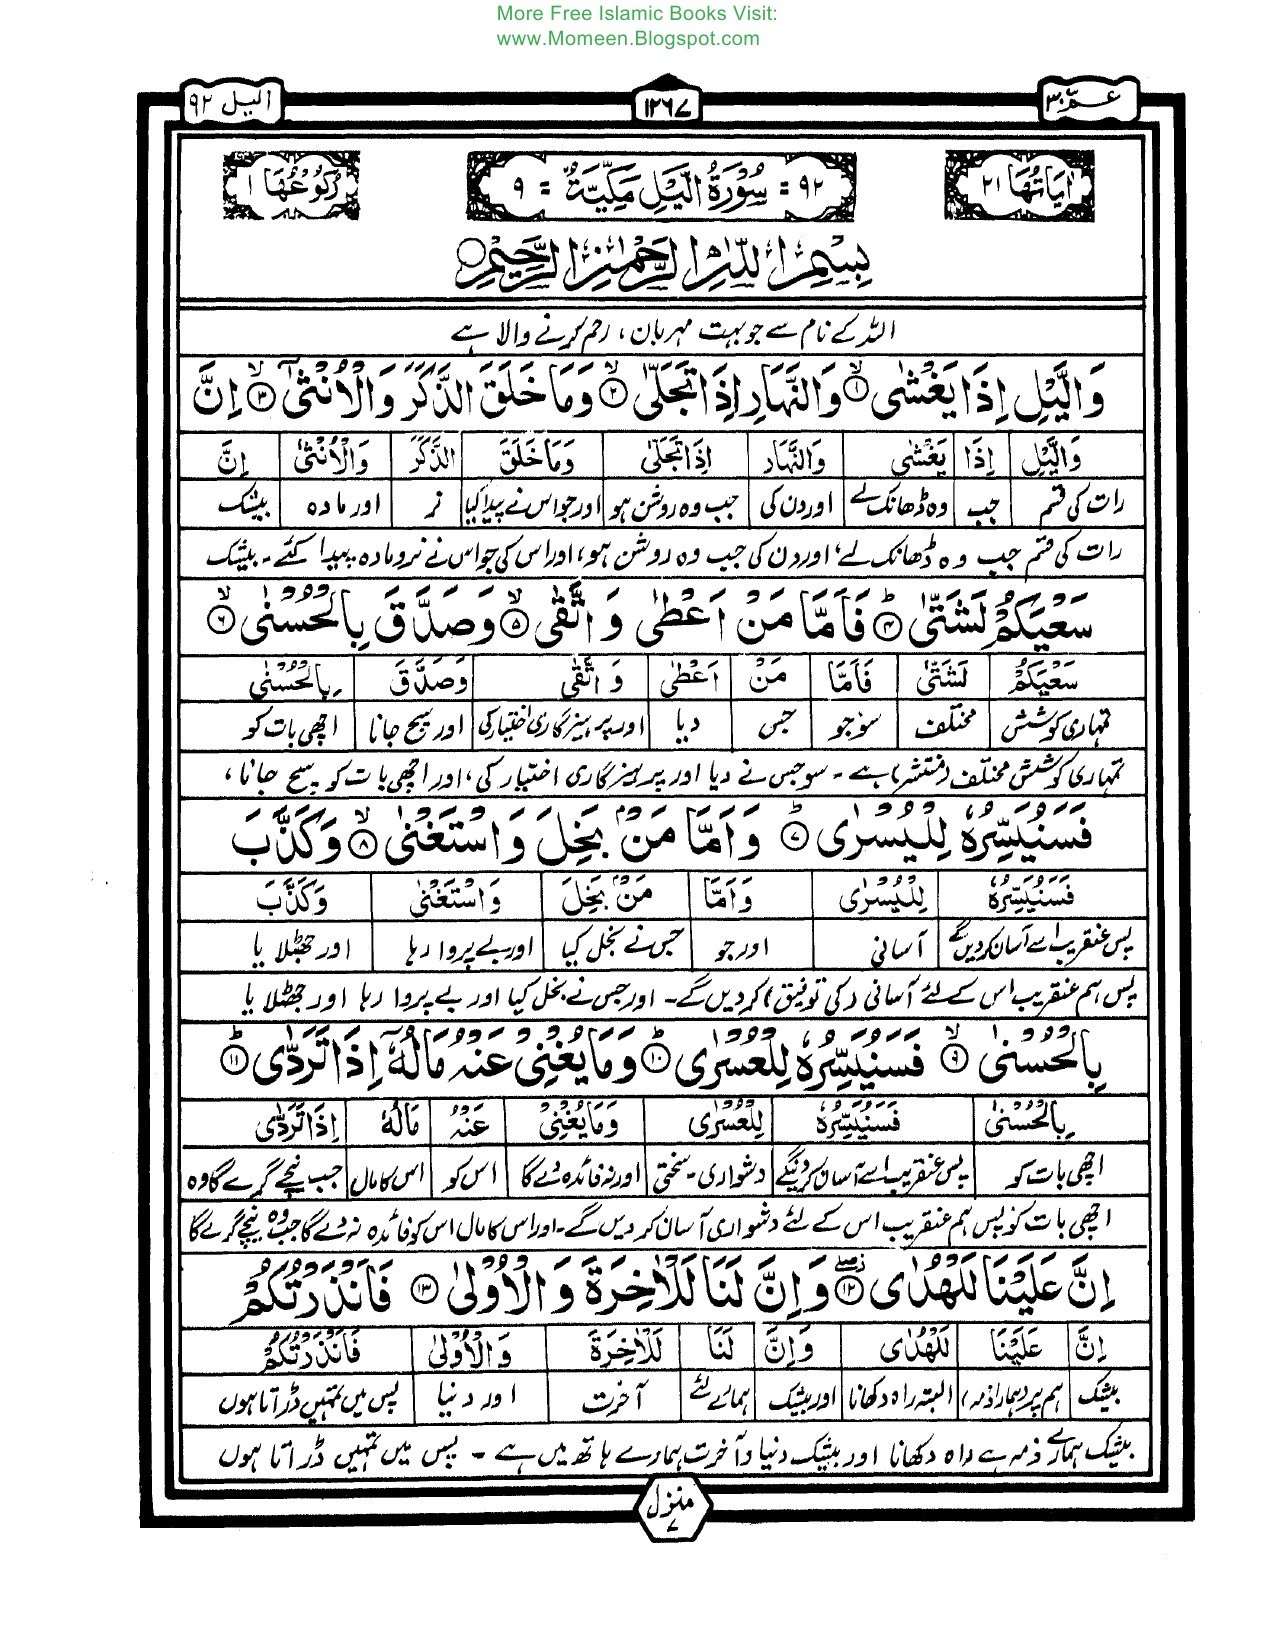 More Free Islamic Books Visit:
www.Momeen.Blogspot.com
عمّ ٣٠ ١٢٦٧ الیل ٩٢
اٰیَاتُهَا ٢١ ٩٢ = سُوْرَةُ الَّیْلِ مَکِّیَّةٌ = ٩ رُکُوْعُهَا ١
بِسْمِ اللّٰهِ الرَّحْمٰنِ الرَّحِیْمِ
اللہ کے نام سے جو بہت مہربان، رحم کرنے والا ہے
وَالَّیْلِ اِذَا یَغْشٰی ١ وَالنَّهَارِ اِذَا تَجَلّٰی ٢ وَمَا خَلَقَ الذَّکَرَ وَالْاُنْثٰۤی ٣ اِنَّ
وَالَّیْلِ اِذَا یَغْشٰی وَالنَّهَارِ اِذَا تَجَلّٰی وَمَا خَلَقَ الذَّکَرَ وَالْاُنْثٰی اِنَّ
رات کی قسم جب وہ ڈھانک لے اور دن کی جب وہ روشن ہو اور جو اس نے پیدا کیا نر اور مادہ بیشک
رات کی قسم جب وہ ڈھانک لے، اور دن کی جب وہ روشن ہو، اور اس کی جو اس نے نر و مادہ پیدا کئے۔ بیشک
سَعْیَکُمْ لَشَتّٰی ٤ فَاَمَّا مَنْ اَعْطٰی وَ اتَّقٰی ٥ وَصَدَّقَ بِالْحُسْنٰی ٦
سَعْیَکُمْ لَشَتّٰی فَاَمَّا مَنْ اَعْطٰی وَ اتَّقٰی وَصَدَّقَ بِالْحُسْنٰی
تمہاری کوشش مختلف سو جو جس دیا اور پرہیزگاری اختیار کی اور سچ جانا اچھی بات کو
تمہاری کوشش مختلف (منتشر) ہے۔ سو جس نے دیا اور پرہیزگاری اختیار کی، اور اچھی بات کو سچ جانا،
فَسَنُیَسِّرُهٗ لِلْیُسْرٰی ٧ وَاَمَّا مَنْۢ بَخِلَ وَاسْتَغْنٰی ٨ وَکَذَّبَ
فَسَنُیَسِّرُهٗ لِلْیُسْرٰی وَاَمَّا مَنْۢ بَخِلَ وَاسْتَغْنٰی وَکَذَّبَ
پس عنقریب اسے آسان کردیں گے آسانی اور جو جس نے بخل کیا اور بے پروا رہا اور جھٹلایا
پس ہم عنقریب اس کے لئے آسانی (کی توفیق) کردیں گے۔ اور جس نے بخل کیا اور بے پروا رہا اور جھٹلایا
بِالْحُسْنٰی ٩ فَسَنُیَسِّرُهٗ لِلْعُسْرٰی ١٠ وَمَا یُغْنِیْ عَنْهُ مَالُهٗۤ اِذَا تَرَدّٰی ١١
بِالْحُسْنٰی فَسَنُیَسِّرُهٗ لِلْعُسْرٰی وَمَا یُغْنِیْ عَنْهُ مَالُهٗ اِذَا تَرَدّٰی
اچھی بات کو پس عنقریب اسے آسان کردینگے دشواری۔ سختی اور نہ فائدہ دے گا اس کو اس کا مال جب نیچے گرے گا وہ
اچھی بات کو پس ہم عنقریب اس کے لئے دشواری آسان کر دیں گے۔ اور اس کا مال اس کو فائدہ نہ دے گا جب وہ نیچے گرے گا
اِنَّ عَلَیْنَا لَلْهُدٰی ١٢ وَاِنَّ لَنَا لَلْاٰخِرَةَ وَالْاُوْلٰی ١٣ فَاَنْذَرْتُکُمْ
اِنَّ عَلَیْنَا لَلْهُدٰی وَاِنَّ لَنَا لَلْاٰخِرَةَ وَالْاُوْلٰی فَاَنْذَرْتُکُمْ
بیشک ہم پر (ہمارا ذمہ) البتہ راہ دکھانا اور بیشک ہمارے لئے آخرت اور دنیا پس میں تمہیں ڈراتا ہوں
بیشک ہمارے ذمہ ہے راہ دکھانا اور بیشک دنیا و آخرت ہمارے ہاتھ میں ہے۔ پس میں تمہیں ڈراتا ہوں
منزل ٧